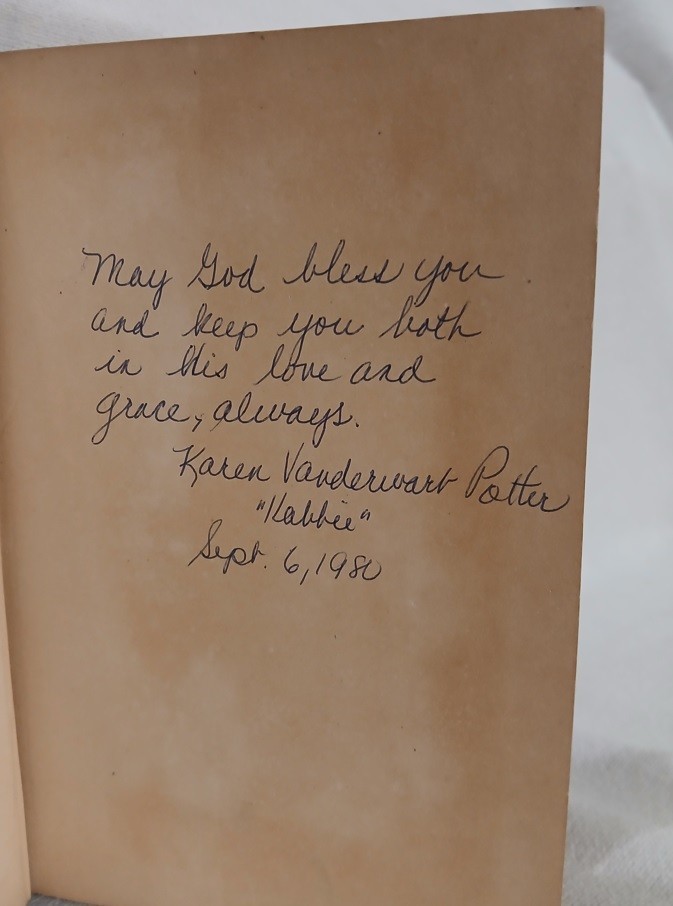 May God bless you
and keep you both
in His love and
grace, always.
Karen Vanderwart Potter
"Kabbie"
Sept. 6, 1980